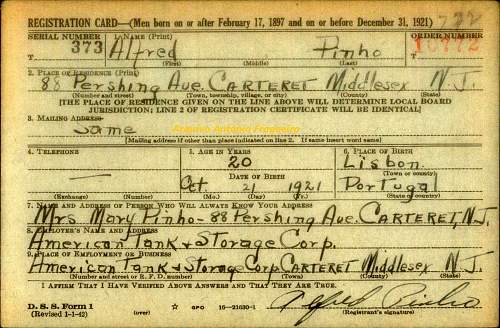 REGISTRATION CARD—(Men born on or after February 17, 1897 and on or before December 31, 1921) 722
SERIAL NUMBER 1. NAME (Print) ORDER NUMBER
T 373 Alfred Pinho T 10772
(First) (Middle) (Last)
2. PLACE OF RESIDENCE (Print)
88 Pershing Ave. CARTERET Middlesex N J.
(Number and street) (Town, township, village, or city) (County) (State)
[THE PLACE OF RESIDENCE GIVEN ON THE LINE ABOVE WILL DETERMINE LOCAL BOARD
JURISDICTION; LINE 2 OF REGISTRATION CERTIFICATE WILL BE IDENTICAL]
3. MAILING ADDRESS
Same
[Mailing address if other than place indicated on line 2. If same insert word same]
4. TELEPHONE 5. AGE IN YEARS 6. PLACE OF BIRTH
20 Lisbon
— DATE OF BIRTH (Town or county)
Oct. 21 1921 Portugal
(Exchange) (Number) (Mo.) (Day) (Yr.) (State or country)
7. NAME AND ADDRESS OF PERSON WHO WILL ALWAYS KNOW YOUR ADDRESS
Mrs Mary Pinho - 88 Pershing Ave. CARTERET, N.J.
8. EMPLOYER'S NAME AND ADDRESS
American Tank & Storage Corp.
9. PLACE OF EMPLOYMENT OR BUSINESS
American Tank & Storage Corp CARTERET Middlesex N.J.
(Number and street or R. F. D. number) (Town) (County) (State)
I AFFIRM THAT I HAVE VERIFIED ABOVE ANSWERS AND THAT THEY ARE TRUE.
D. S. S. Form 1
(Revised 1-1-42) (over) ☆ GPO 16—21630-1 Alfred Pinho
(Registrant's signature)